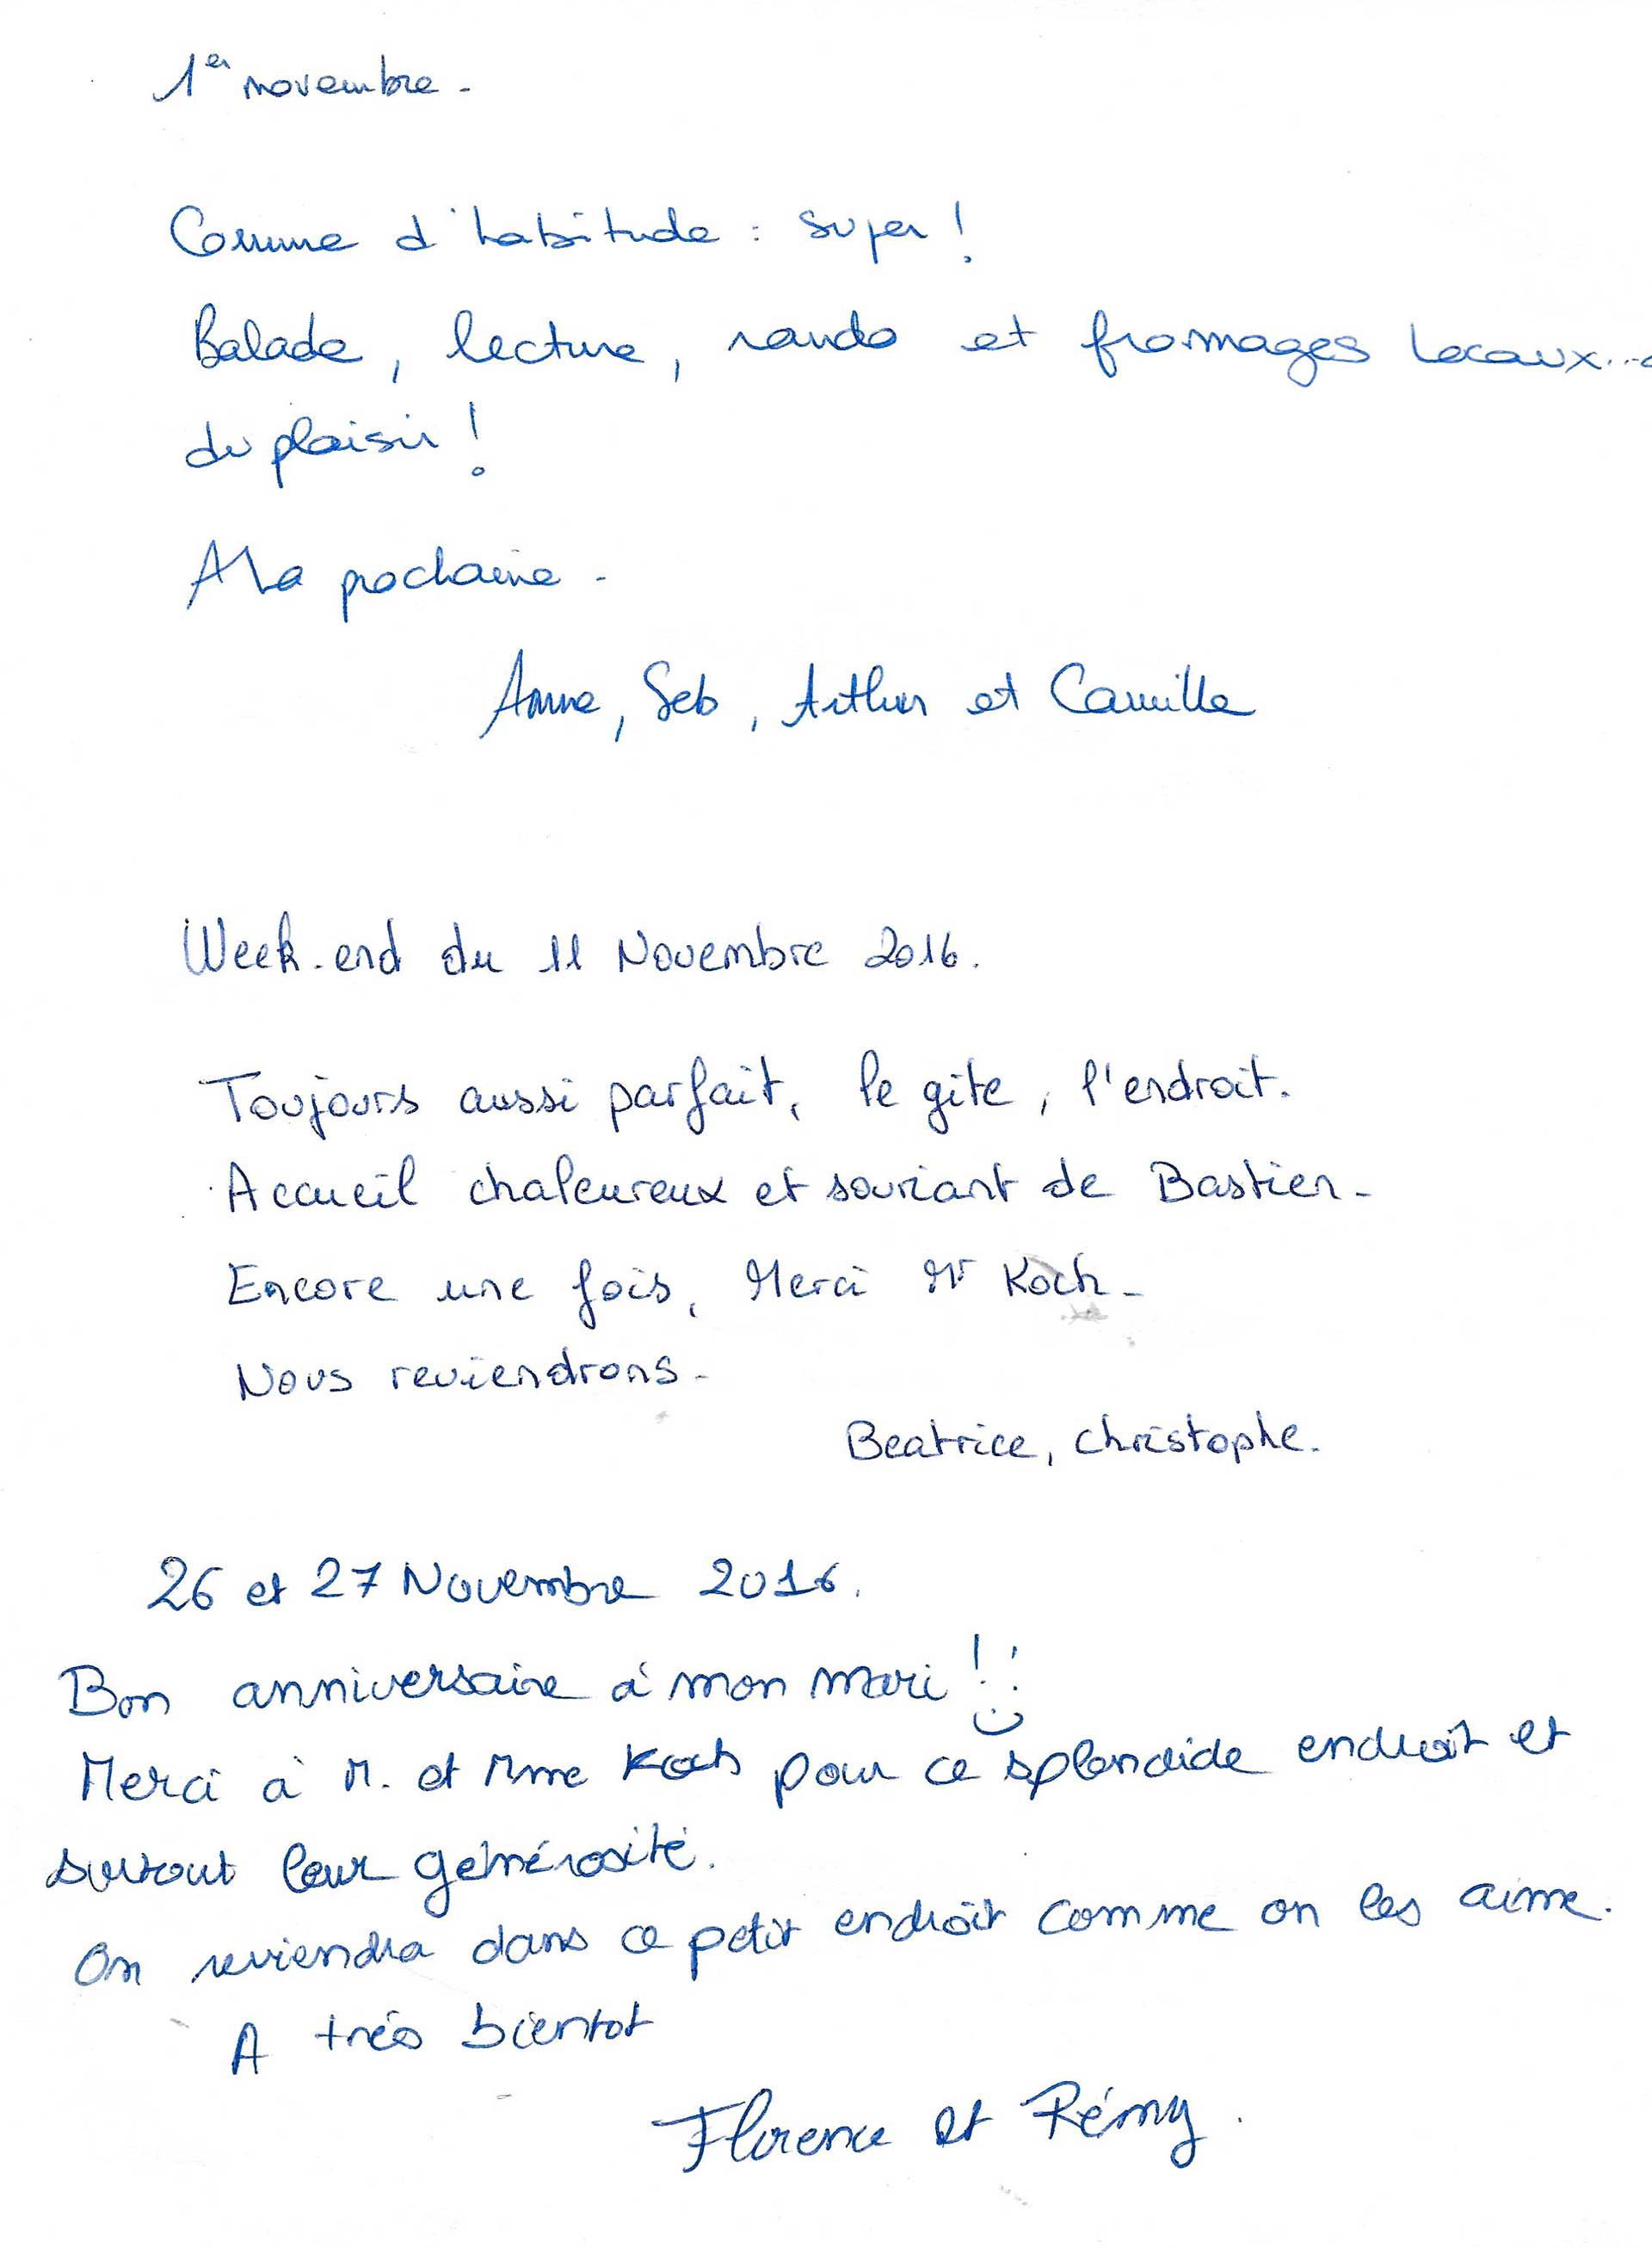 1er novembre -
Comme d'habitude : super !
Balade, lecture, rando et fromages locaux...
du plaisir !
A la prochaine -
Anne, Seb, Arthur et Camille
Week-end du 11 Novembre 2016.
Toujours aussi parfait, le gite, l'endroit.
Accueil chaleureux et souriant de Bastien -
Encore une fois, Merci Mr Koch -
Nous reviendrons -
Beatrice, Christophe.
26 et 27 Novembre 2016.
Bon anniversaire à mon mari !!
Merci à M. et Mme Koch pour ce splendide endroit et
surtout leur générosité.
On reviendra dans ce petit endroit comme on les aime.
A très bientot
Florence et Rémy.